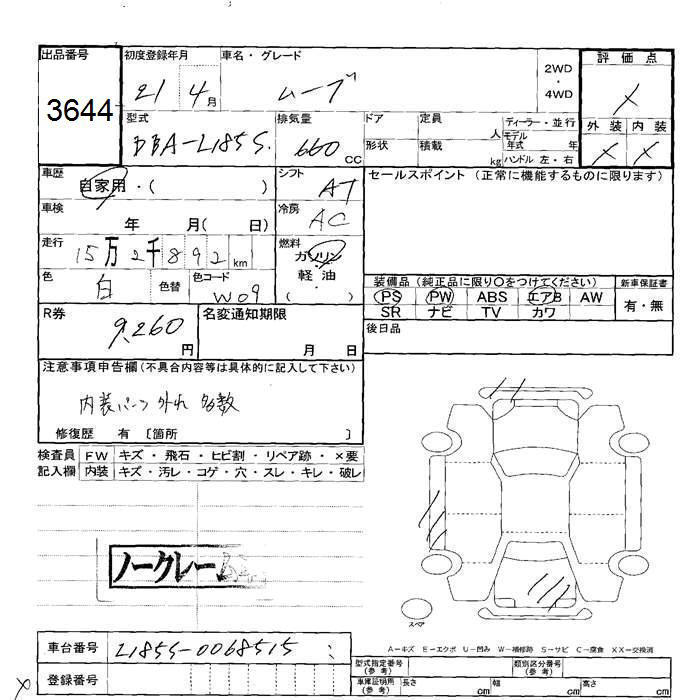 出品番号 初度登録年月 車名・グレード 2WD ・ 4WD 評価点
3644 21 4月 ムーブ X
型式 排気量 ドア 定員 人 ディーラー・並行 外装 内装
DBA-L185S. 660 CC 形状 積載 kg モデル年式 年 ハンドル 左・右 X X
車歴 シフト セールスポイント (正常に機能するものに限ります)
自家用・( ) AT
車検 冷房
年 月( 日) AC
走行 燃料
15万2千892km ガソリン・軽油 ( )
色 色替 色コード 装備品 (純正品に限り〇をつけてください) 新車保証書
白 W09 PS PW ABS エアB AW 有・無
SR ナビ TV カワ
R券 名変通知期限 後日品
9,260円 月 日
注意事項申告欄 (不具合内容等は具体的に記入して下さい)
内装パーツ外れ 多数
修復歴 有 〔箇所 〕
検査員 FW キズ・飛石・ヒビ割・リペア跡・×要
記入欄 内装 キズ・汚レ・コゲ・穴・スレ・キレ・破レ
ノークレーム
スペア
A－キズ E－エクボ U－凹み W－補修跡 S－サビ C－腐食 XX－交換済
車台番号 L185S-0068515 型式指定番号 (参考) 類別区分番号 (参考)
登録番号 車庫証明用 (参考) 長さ cm 幅 cm 高さ cm